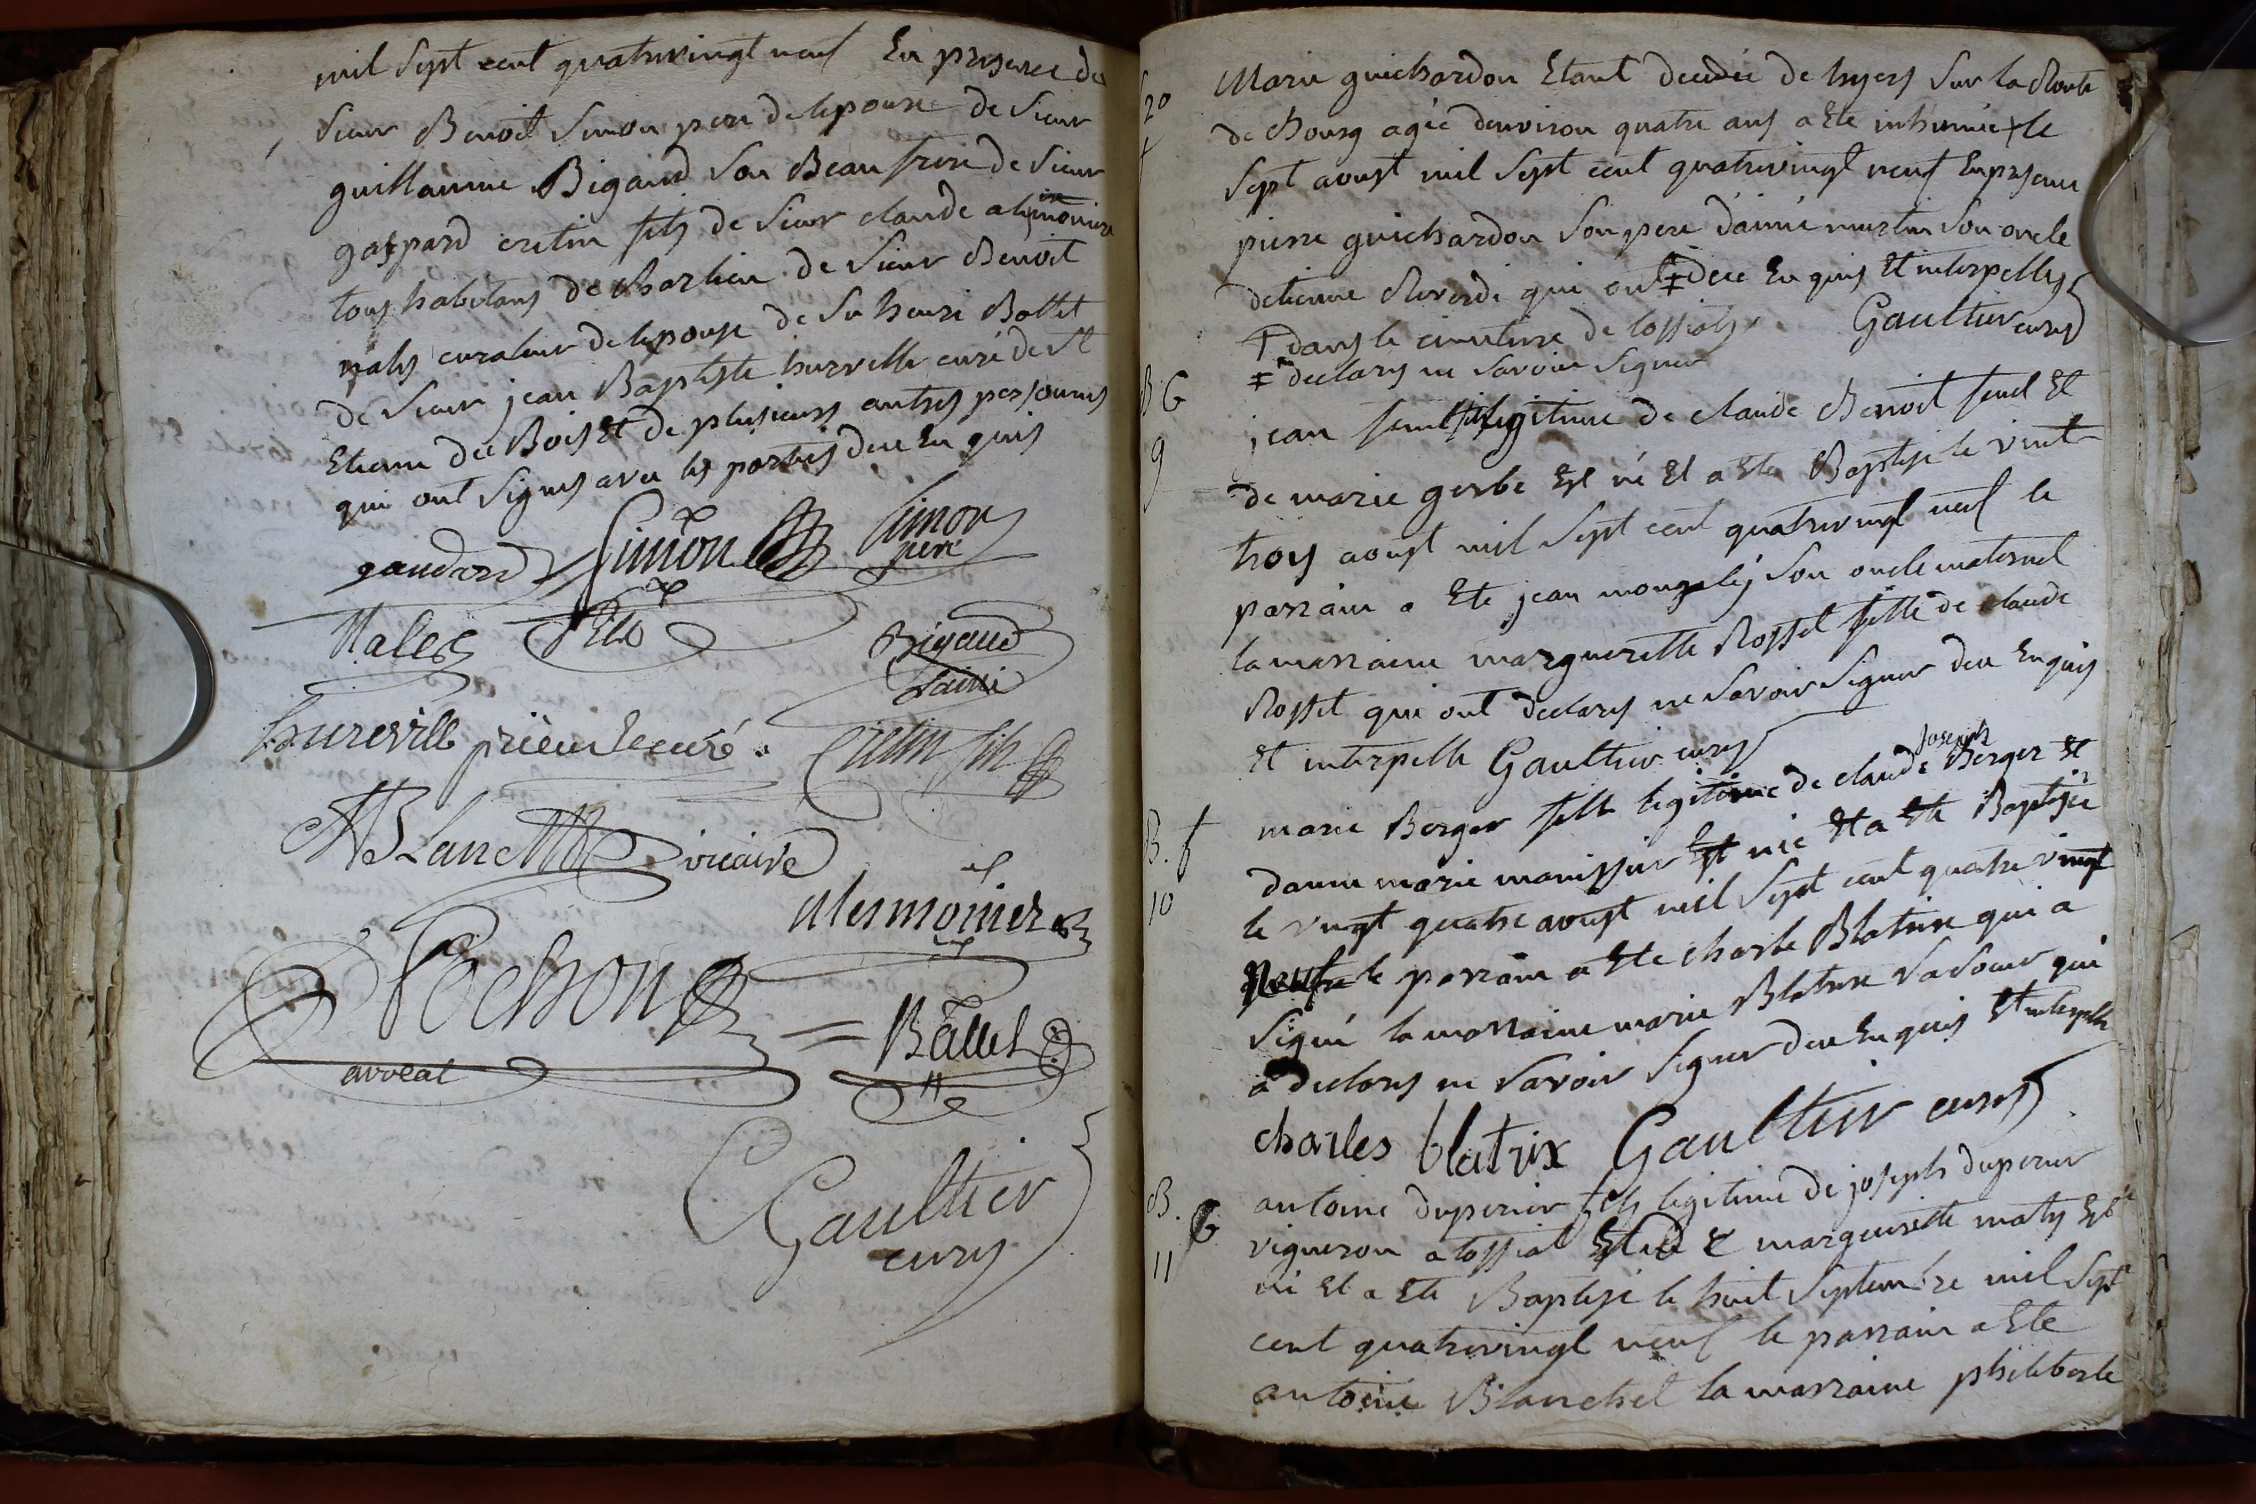 mil Sept cent quatrevingt neuf En presence de
Sieur Benoit Simon pere de lepouse de Sieur
guillaume Bigaud Son Beau frere de Sieur
gaspard cretin fils de Sieur claude
tous habitans de charlieu de Sieur Benoit
males curateur de lepouse de Sr henri Ballet
de Sieur jean Baptiste hureville curé de St
Etienne de Bois Et de plusieurs autres personnes
qui ont Signes avec les parties deue En quis
gaudard Simon Simon
pere
Males
Bigaud
L'ainé
hureville prieur curé. Cretin fils
Blanc vicaire
Alesmonier
Cochon
avocat
Ballet
Gaultier
curé
20
Marie guichardon Etant decedée de hyers Sur la Route
de Bourg agée denviron quatre ans a Ete inhumée le
Sept aoust mil Sept cent quatrevingt neuf En presence
pierre guichardon Son pere daimé martin Son oncle
detienne Reverdi qui ont ‡ deue En quis Et interpelles
† dans le cimetiere de lossiat Gaultier curé
‡ declares ne Savoir Signer
B G
9
jean feul fils legitime de claude Benoit feul Et
de marie gerbe Est né Et a Ete Baptise le vint
trois aoust mil Sept cent quatrevingt neuf le
parrain a Ete jean Son oncle maternel
la marraine marguerette Rosset fille de claude
Rosset qui ont declares ne Savoir Signer deue En quis
Et interpelle Gaultier curé
joseph
B. f
10
marie Berger fille legitime de claude Berger Et
danne marie manissier Est née Et a Ete Baptisée
le vingt quatre aoust mil Sept cent quatre vingt
neuf le parrain a Ete charle Blatrix qui a
Signé la marraine marie Blatrix Sa Soeur qui
a declares ne Savoir Signer deue En quis Et interpelle
charles blatrix Gaultier curé
B. G
11
antoine duperier fils legitime de joseph duperier
vigneron a lossiat Et de marguerette maty Est
né Et a Ete Baptise le huit Septembre mil Sept
cent quatrevingt neuf le parrain a Ete
antoine Blanchet la marraine philiberte